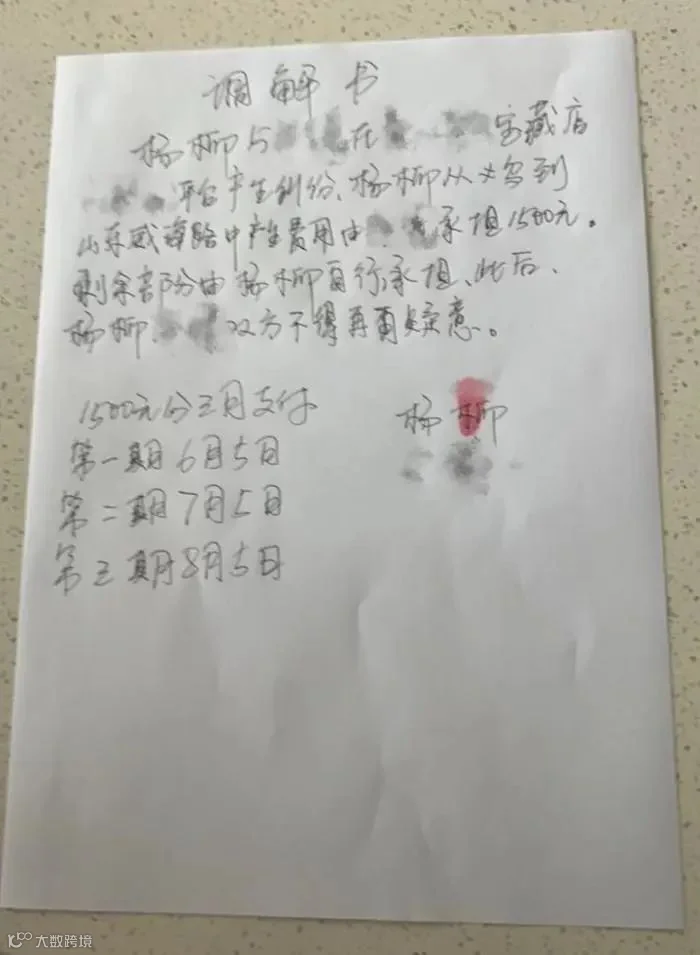 调解书
杨柳与 在 宝藏店
平台产生纠纷、杨柳从义乌到
山东威海路中产生费用由 承担1500元。
剩余部分由杨柳自行承担、此后、
杨柳、 双方不得再有疑意。
1500元分三月支付
杨柳
第一期6月5日
第二期7月5日
第三期8月5日
大数跨境